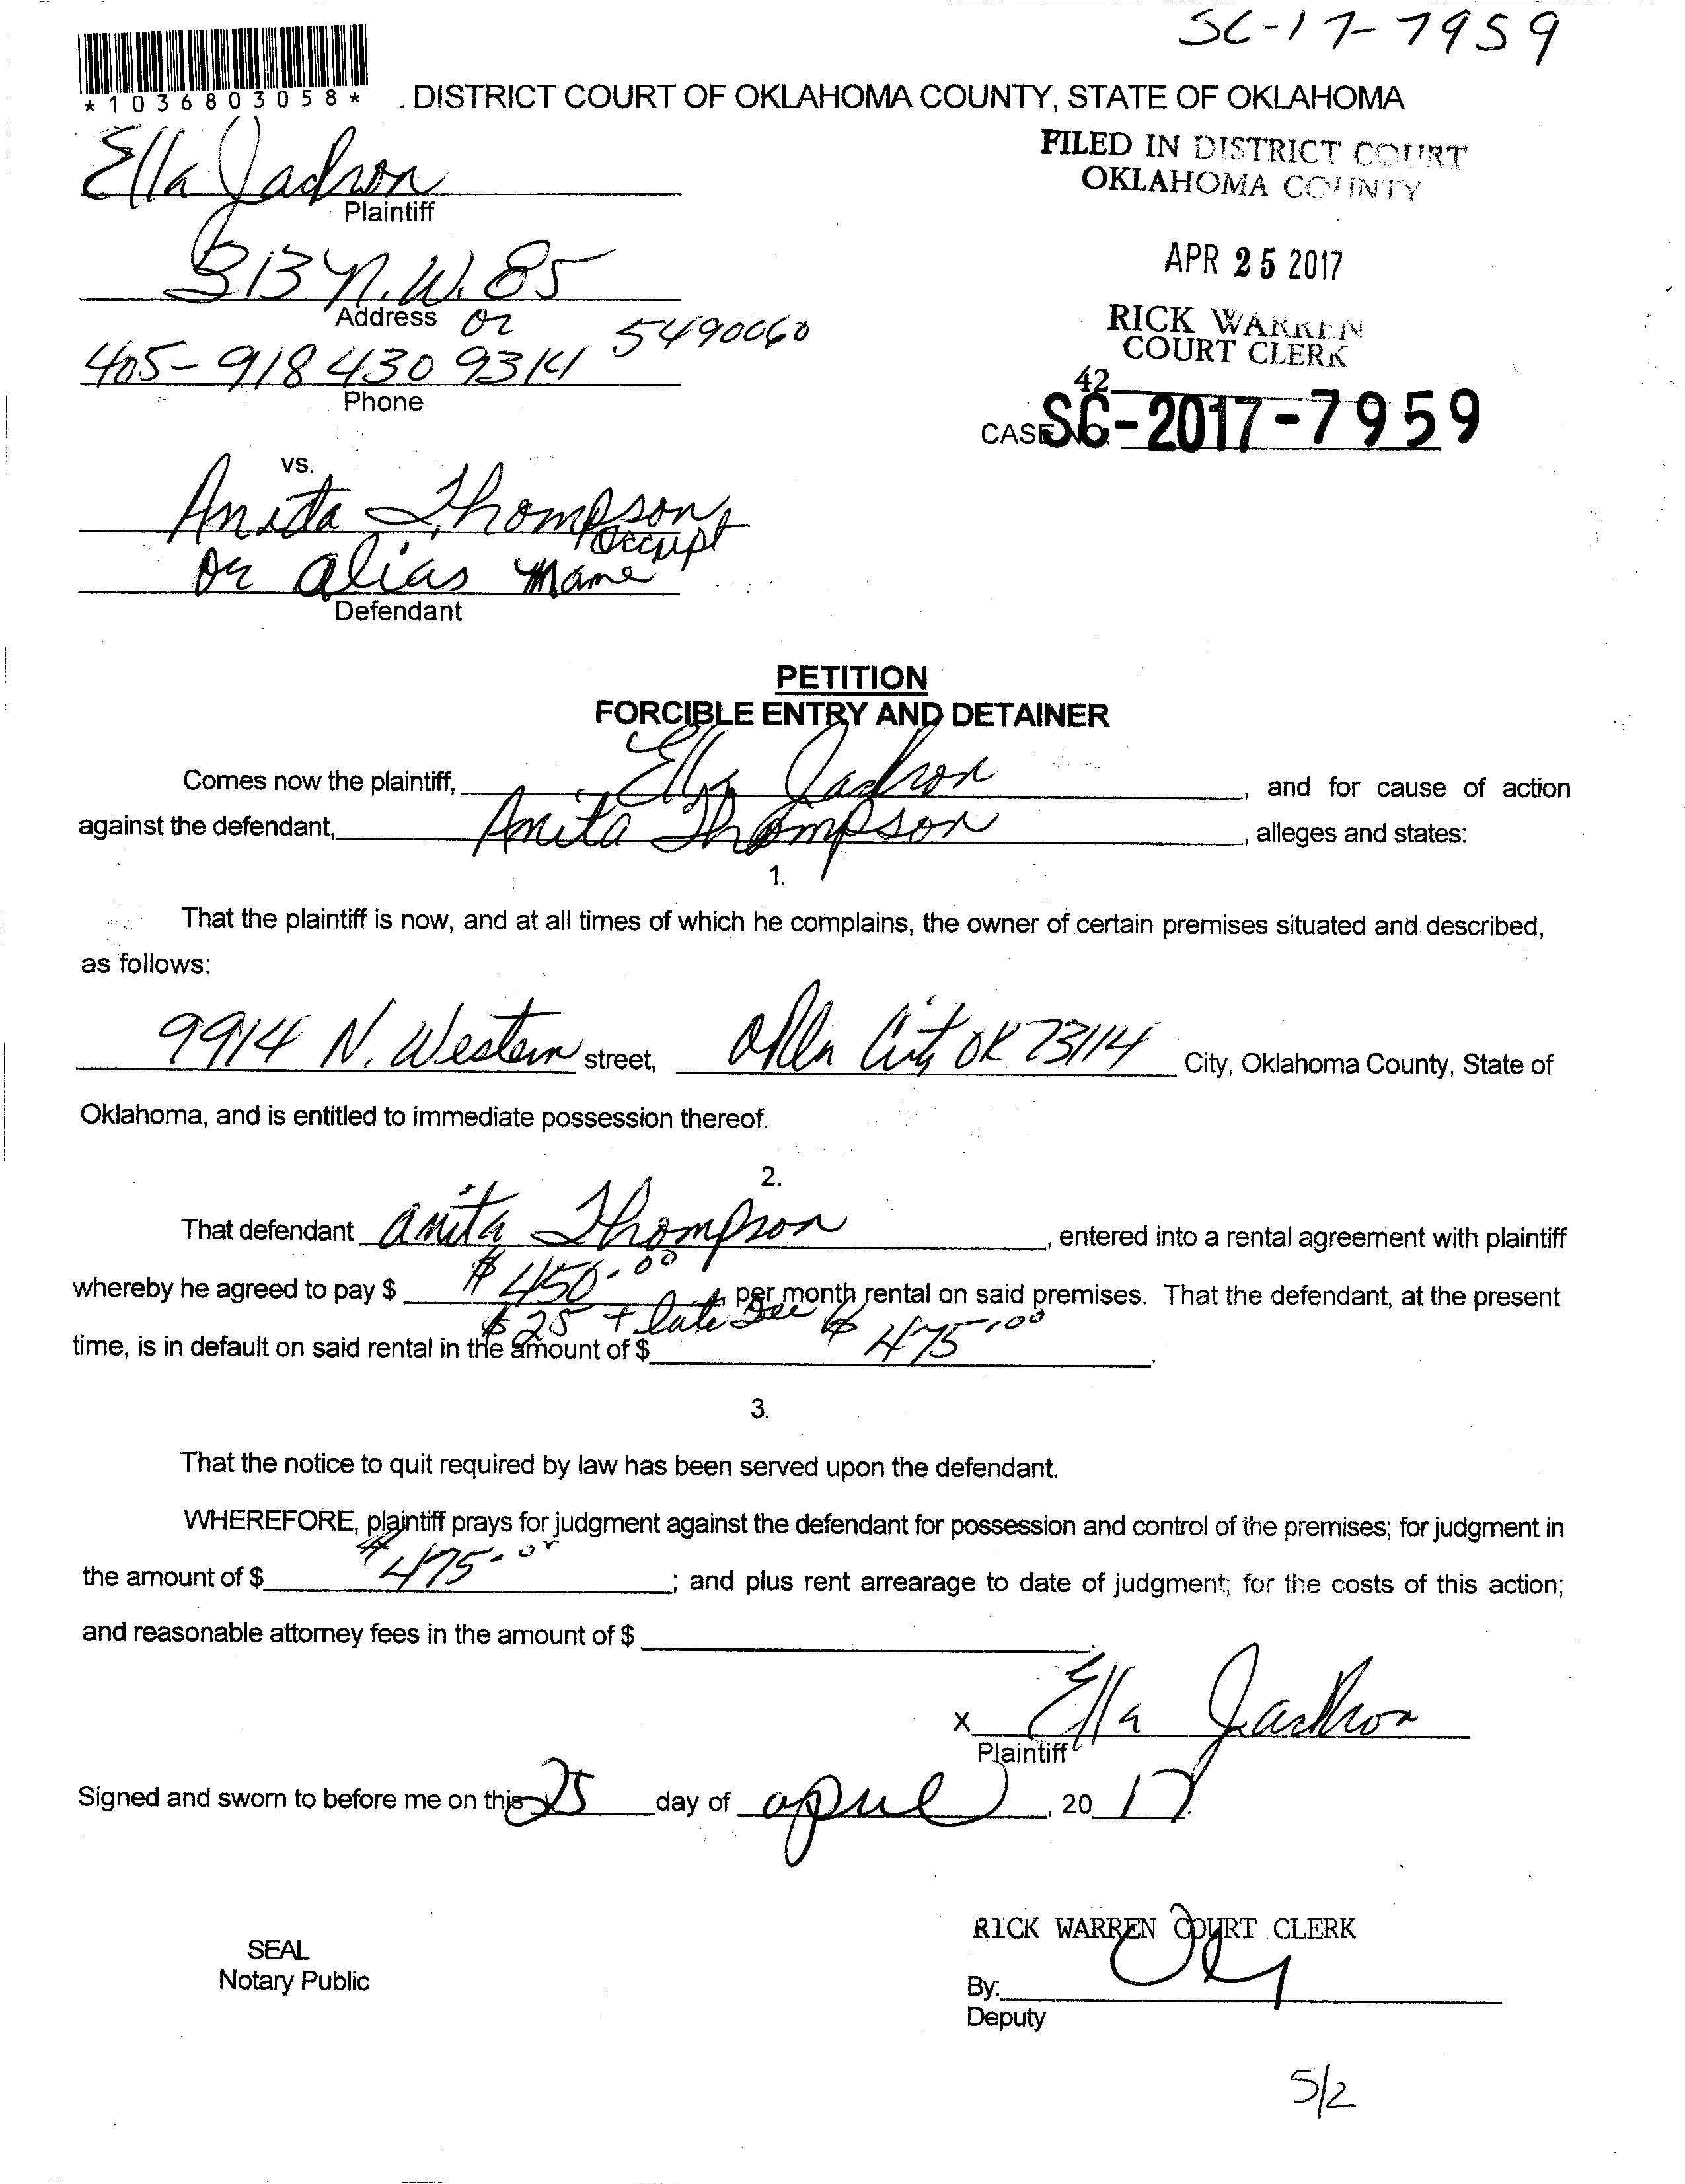 SC-17-7959
*1036803058*
. DISTRICT COURT OF OKLAHOMA COUNTY, STATE OF OKLAHOMA
Ella Jackson
Plaintiff
FILED IN DISTRICT COURT
OKLAHOMA COUNTY
313 N.W. 85
Address
APR 25 2017
or 5490060
405-918 430 9314
Phone
RICK WARREN
COURT CLERK
42
CASE NO. SC-2017-7959
vs.
Anita Thompson
or alias name
Defendant
PETITION
FORCIBLE ENTRY AND DETAINER
Comes now the plaintiff, Ella Jackson, and for cause of action
against the defendant, Anita Thompson, alleges and states:
1.
That the plaintiff is now, and at all times of which he complains, the owner of certain premises situated and described,
as follows:
9914 N. Western street, Okla City OK 73114 City, Oklahoma County, State of
Oklahoma, and is entitled to immediate possession thereof.
2.
That defendant Anita Thompson, entered into a rental agreement with plaintiff
whereby he agreed to pay $ $450.00 per month rental on said premises. That the defendant, at the present
$25 + late
time, is in default on said rental in the amount of $ $475.00.
3.
That the notice to quit required by law has been served upon the defendant.
WHEREFORE, plaintiff prays for judgment against the defendant for possession and control of the premises; for judgment in
the amount of $ $475.00; and plus rent arrearage to date of judgment; for the costs of this action;
and reasonable attorney fees in the amount of $
x Ella Jackson
Plaintiff
Signed and sworn to before me on this 25 day of april, 2017.
RICK WARREN COURT CLERK
SEAL
Notary Public
By:
Deputy
5/2